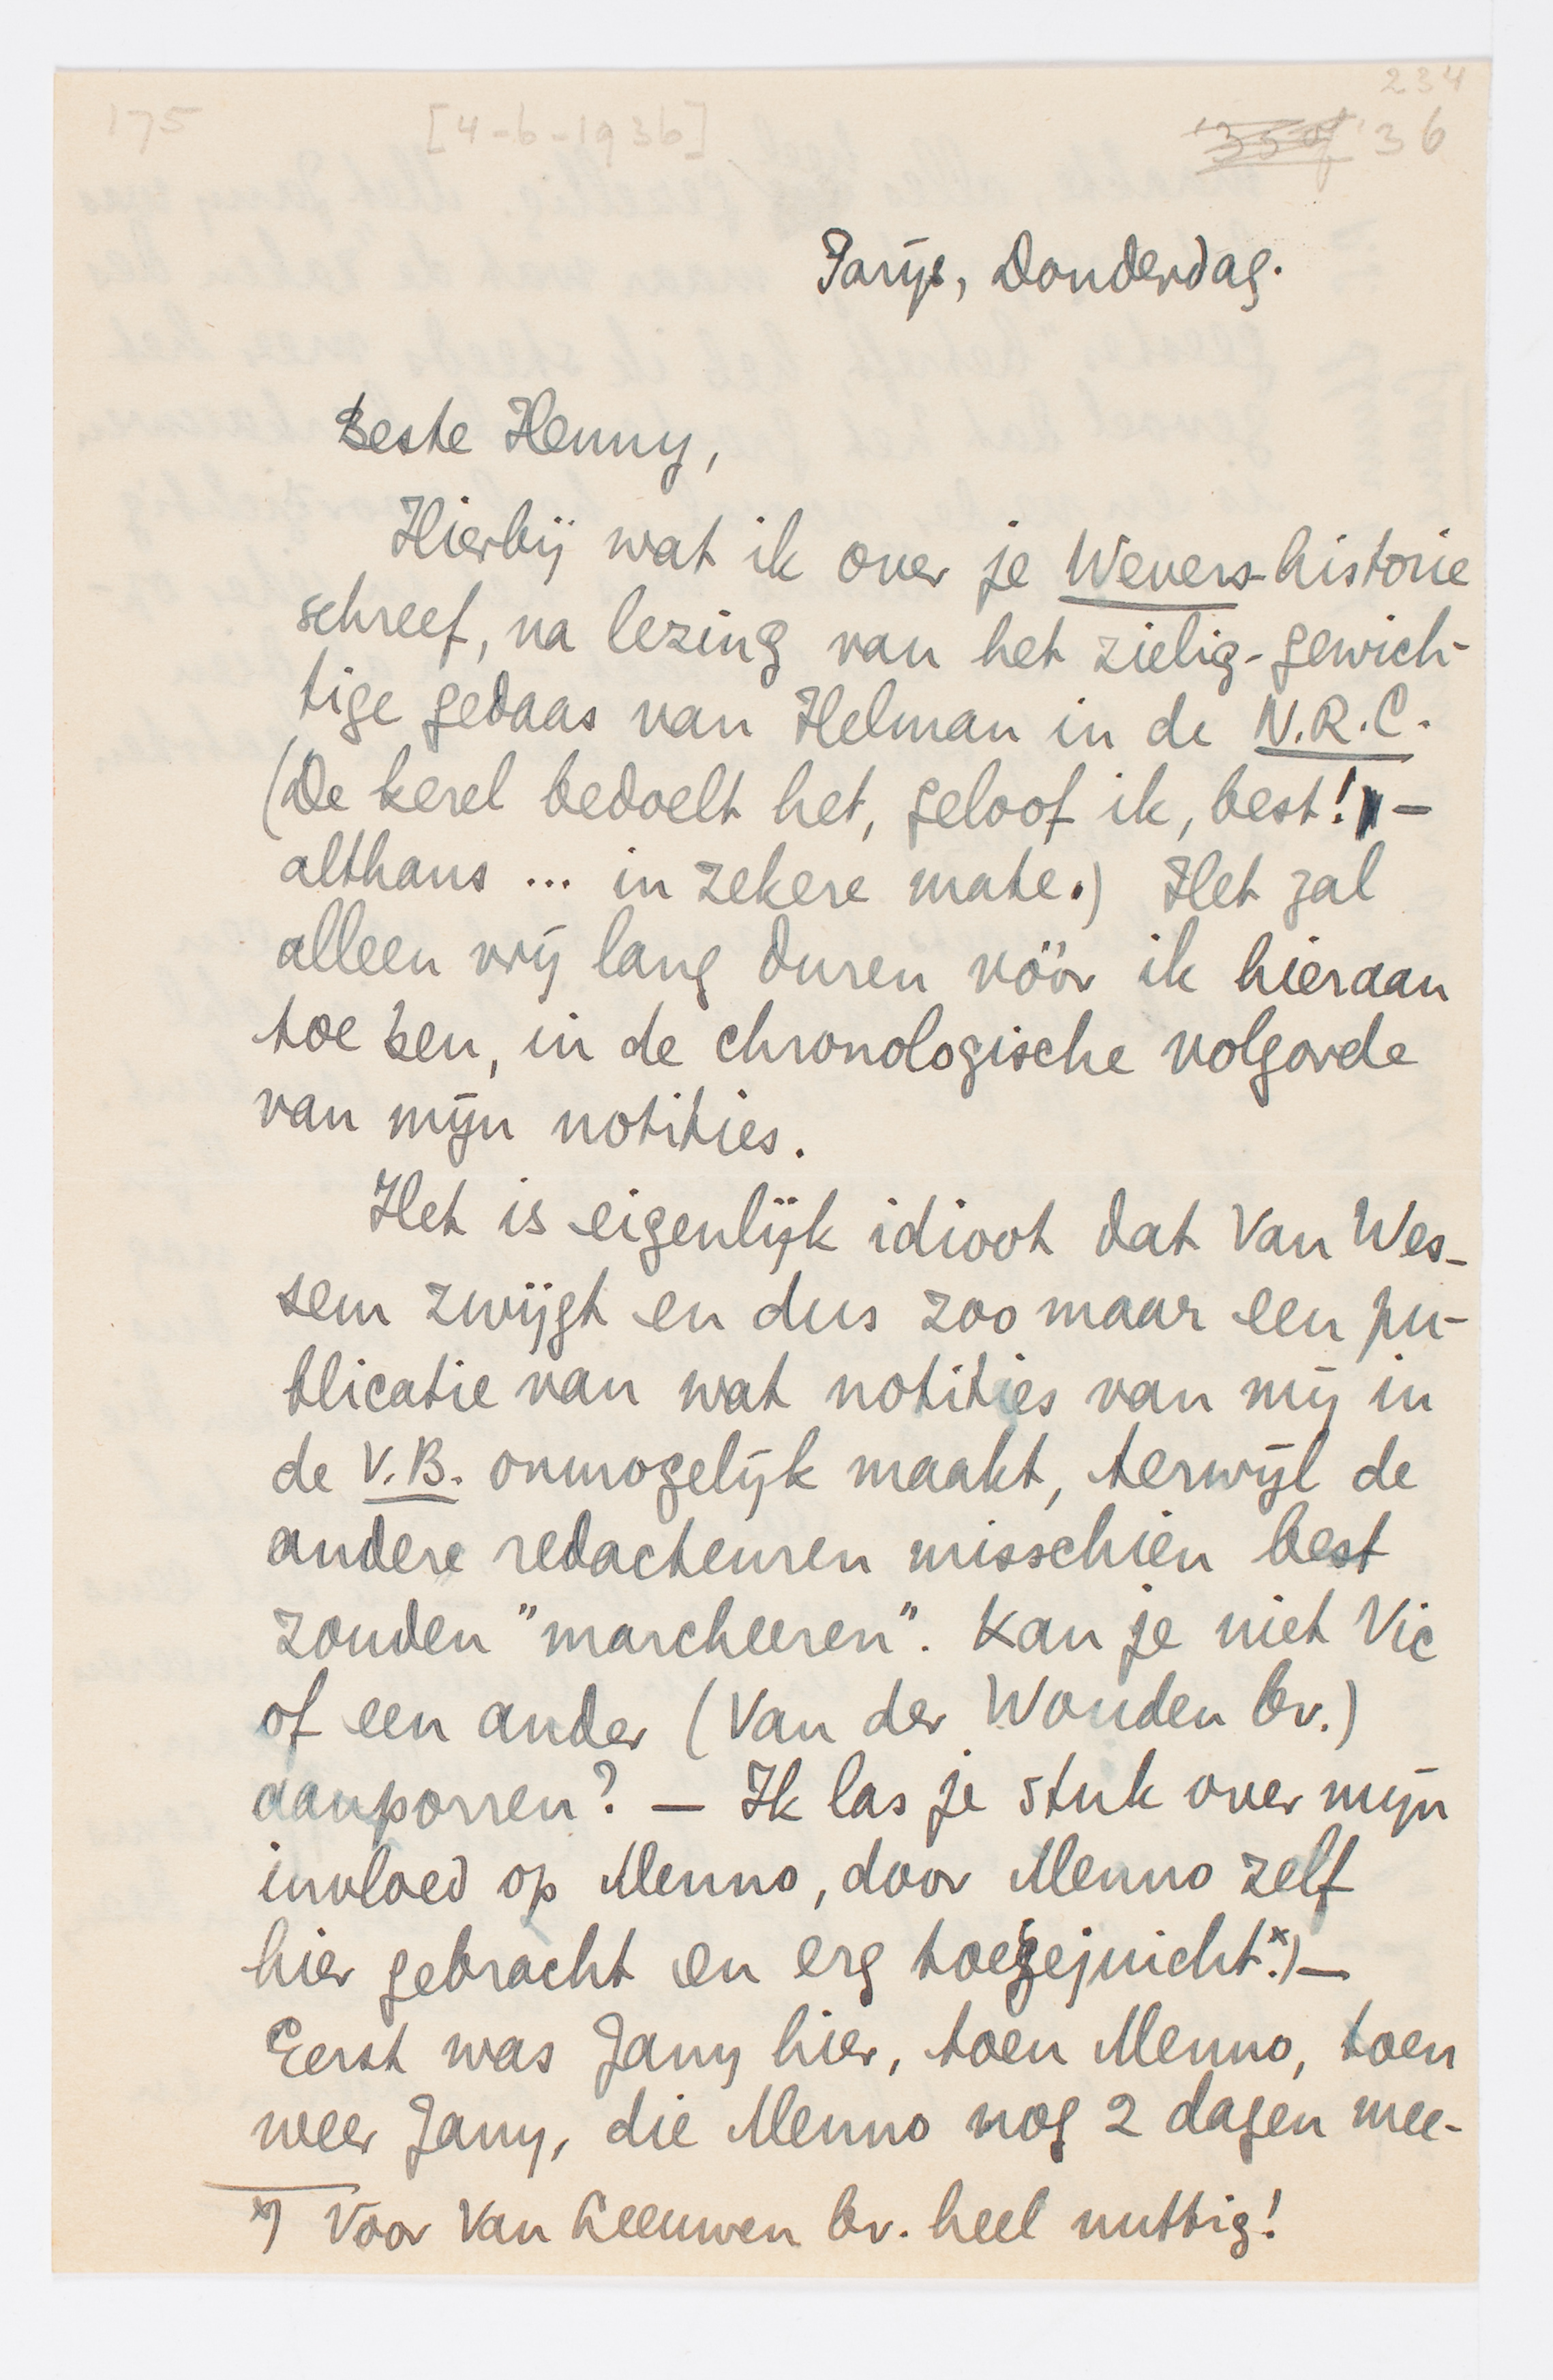 234
175 [4-6-1936] '35 of '36
Parijs, Donderdag.
Beste Henny,
Hierbij wat ik over je Wevers-historie
schreef, na lezing van het zielig-gewich-
tige gedaas van Helman in de N.R.C.
(De kerel bedoelt het, geloof ik, best! —
althans ... in zekere mate.) Het zal
alleen vrij lang duren vóór ik hieraan
toe ben, in de chronologische volgorde
van mijn notities.
Het is eigenlijk idioot dat Van Wes-
sem zwijgt en dus zoo maar een pu-
blicatie van wat notities van mij in
de V.B. onmogelijk maakt, terwijl de
andere redacteuren misschien best
zouden "marcheeren". Kan je niet Vic
of een ander (Van der Wouden bv.)
aanporren? — Ik las je stuk over mijn
invloed op Menno, door Menno zelf
hier gebracht en erg toegejuicht.*) —
Eerst was Jany hier, toen Menno, toen
weer Jany, die Menno nog 2 dagen mee-
*) Voor Van Leeuwen bv. heel nuttig!